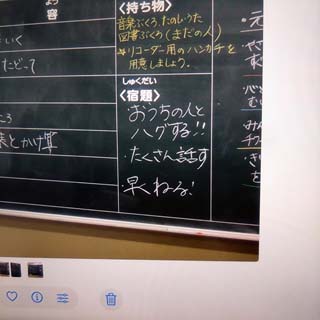 容
いく
たどって
表とかけ算
〈持ち物〉
音楽ぶくろ、たのしいうた
図書ぶくろ(まだの人)
☆リコーダー用のハンカチを
用意しましょう。
しゅくだい
〈宿題〉
・おうちの人と
ハグする!!
・たくさん話す
・早くねる!